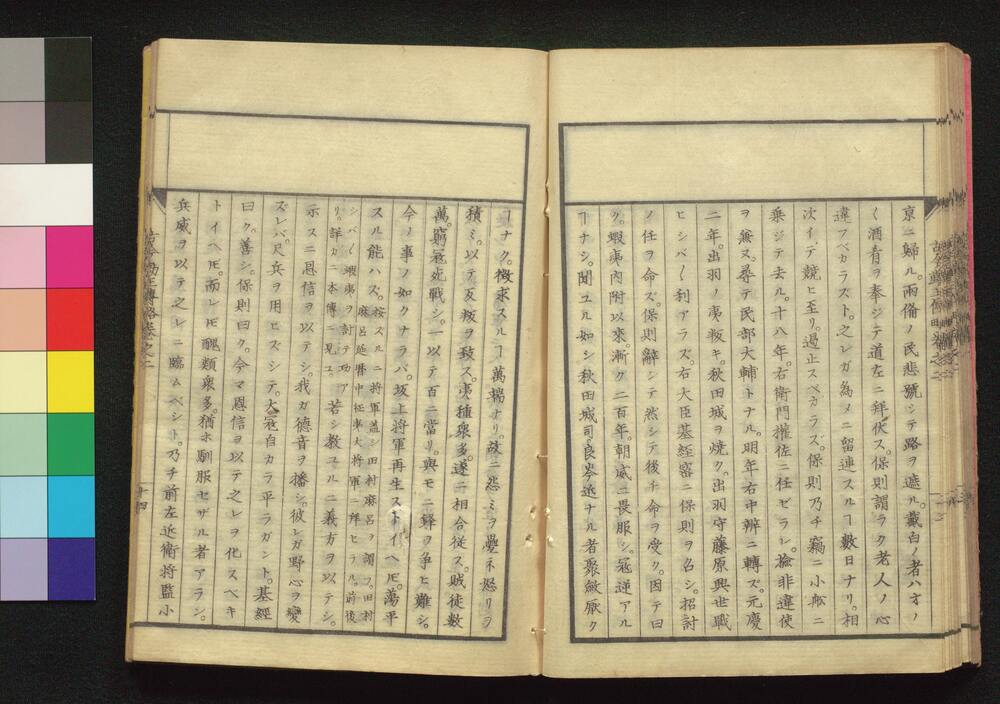 京ニ婦ル。兩備ノ民悲號シテ路ヲ遮ル。戴白ノ者ハオノ
〱酒肴ヲ奉ジテ道左ニ拜伏ス。保則謂ラク老人ノ心
違フベカラスト。之レガ為メニ留連スルヿ數日ナリ。相
次イデ競ヒ至リ。遏止スベカラズ。保則乃チ竊ニ小舩ニ
乗ジテ去ル。十八年。右衛門權佐ニ任ゼラレ。撿非違使
ヲ無ヌ。尋テ民部大輔トナル。明年右中辨ニ轉ズ。元慶
二年。出羽ノ夷叛キ。秋田城ヲ焼ク。出羽守藤原興世戰
ヒシバ〱利アラズ。右大臣基經密ニ保則ヲ召シ。招討
ノ任ヲ命ズ。保則辭シテ然シテ後チ命ヲ受ク。因テ曰
ク。蝦夷内附以來。漸ク二百年。朝威ニ畏服シ。冦逆アル
ヿナシ。聞ユル如シ秋田城司良岑近ナル者聚斂厭ク
ヿナク。徴求スルヿ萬端ナリ。故ニ怨ミヲ疊子怒リヲ
積ミ。以テ反叛ヲ致ス。夷種衆多。遂ニ相合従ス。賊徒數
萬。窮冦死戰シ。一以テ百ニ當リ。與モニ鋒ヲ争ヒ難シ。
今ノ事ノ如クナラバ。坂上將軍再生ストイヘ𪜈。蕩平
スル能ハズ。按スルニ將軍蓋シ田村麻呂ヲ謂フ。田村
麻呂延暦中征東大將軍ニ拜ヒラル。前後
シバ〱蝦夷ヲ討テ功ア
リ。詳カニ本傳ニ見ユ。若シ教ユルニ義方ヲ以テシ。
示スニ恩信ヲ以テシ。我ガ德音ヲ播シ。彼レガ野心ヲ變
ズレバ。尺兵ヲ用ヒズシテ。大冦自カラ平ラガント。基經
曰ク。善シ。保則曰ク。今マ恩信ヲ以テ之レヲ化スベキ
トイヘ𪜈。而レ𪜈醜類衆多。猶ホ馴服セザル者アラン。
兵威ヲ以テ之レニ臨ムベシト。乃チ前左近衛將監小
十四